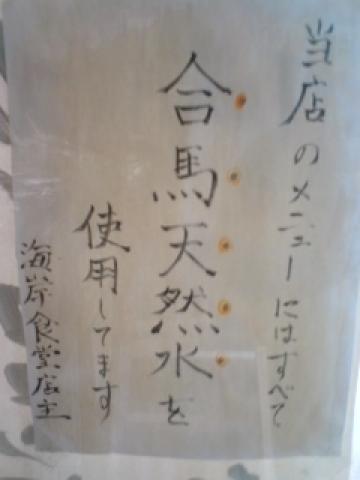 当店のメニューにはすべて
合馬天然水を
使用してます
海岸食堂店主